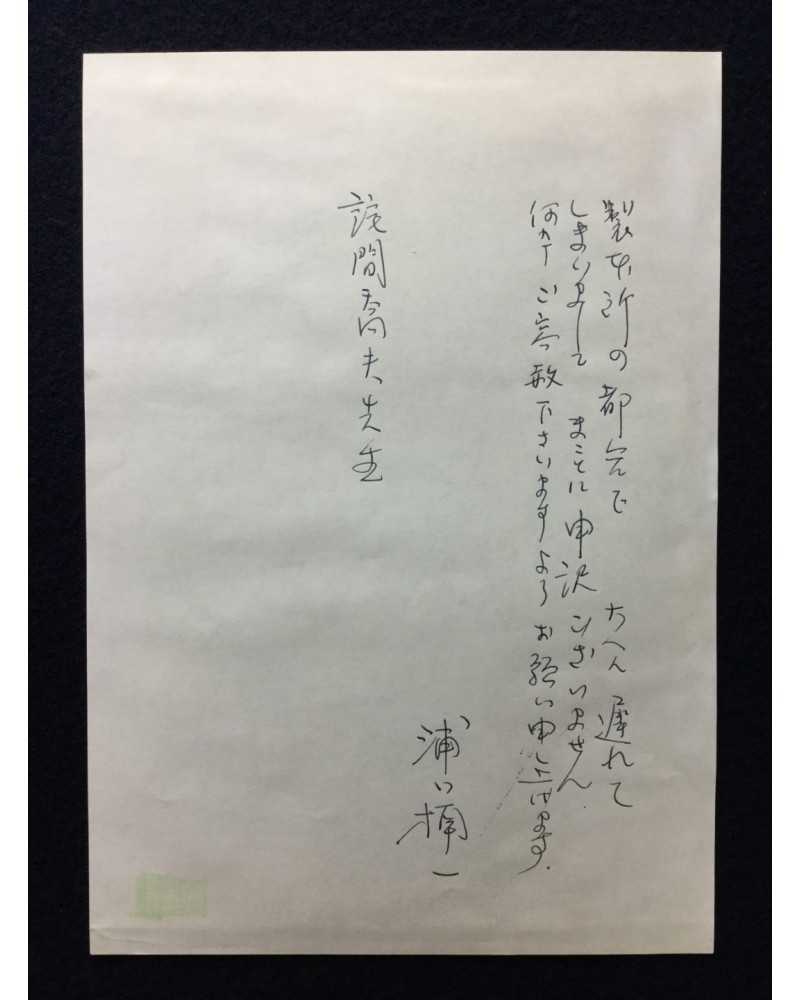 製本所の都合で たいへん遅れて
しまいまして まことに申訳ございません.
何卒ご容赦下さいますよう お願い申し上げます.
一
間喬夫先生